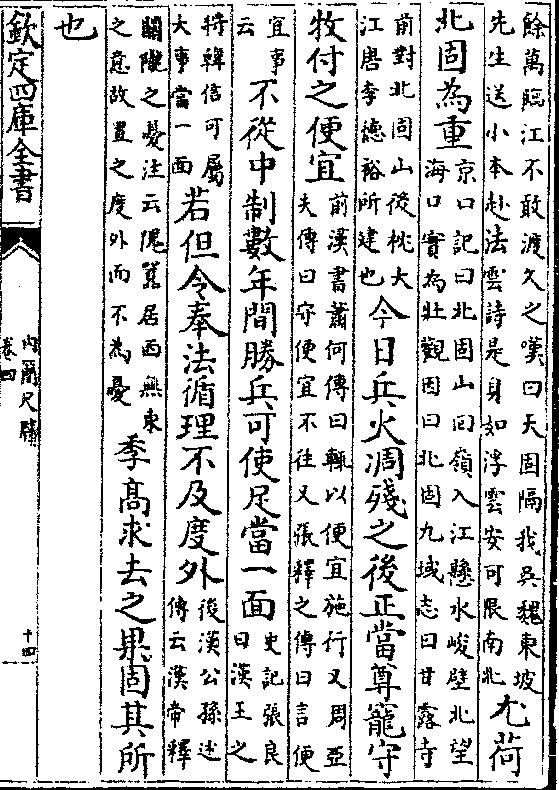 餘萬臨江不敢渡久之嘆曰天固隔我吳魏東坡
先生送小本赴法雲詩是身如浮雲安可限南北
尤荷
北固為重
京口記曰北固山回嶺入江懸水峻壁北望
海口實為壯觀因曰北固九域志曰甘露寺
前對北固山後枕大
江唐李德裕所建也
今日兵火凋殘之後正當尊寵守
牧付之便宜
前漢書蕭何傳曰輒以便宜施行又周亞
夫傳曰守便宜不往又張釋之傳曰言便
宜事
云
不從中制數年間勝兵可使足當一面
史記張良
曰漢王之
將韓信可屬
大事當一面
若但令奉法循理不及度外
後漢公孫述
傳云漢帝釋
關隴之憂注云隗囂居西無東
之意故置之度外而不為憂
季高求去之果固其所
也
欽定四庫全書
内簡尺牘
卷四
十四